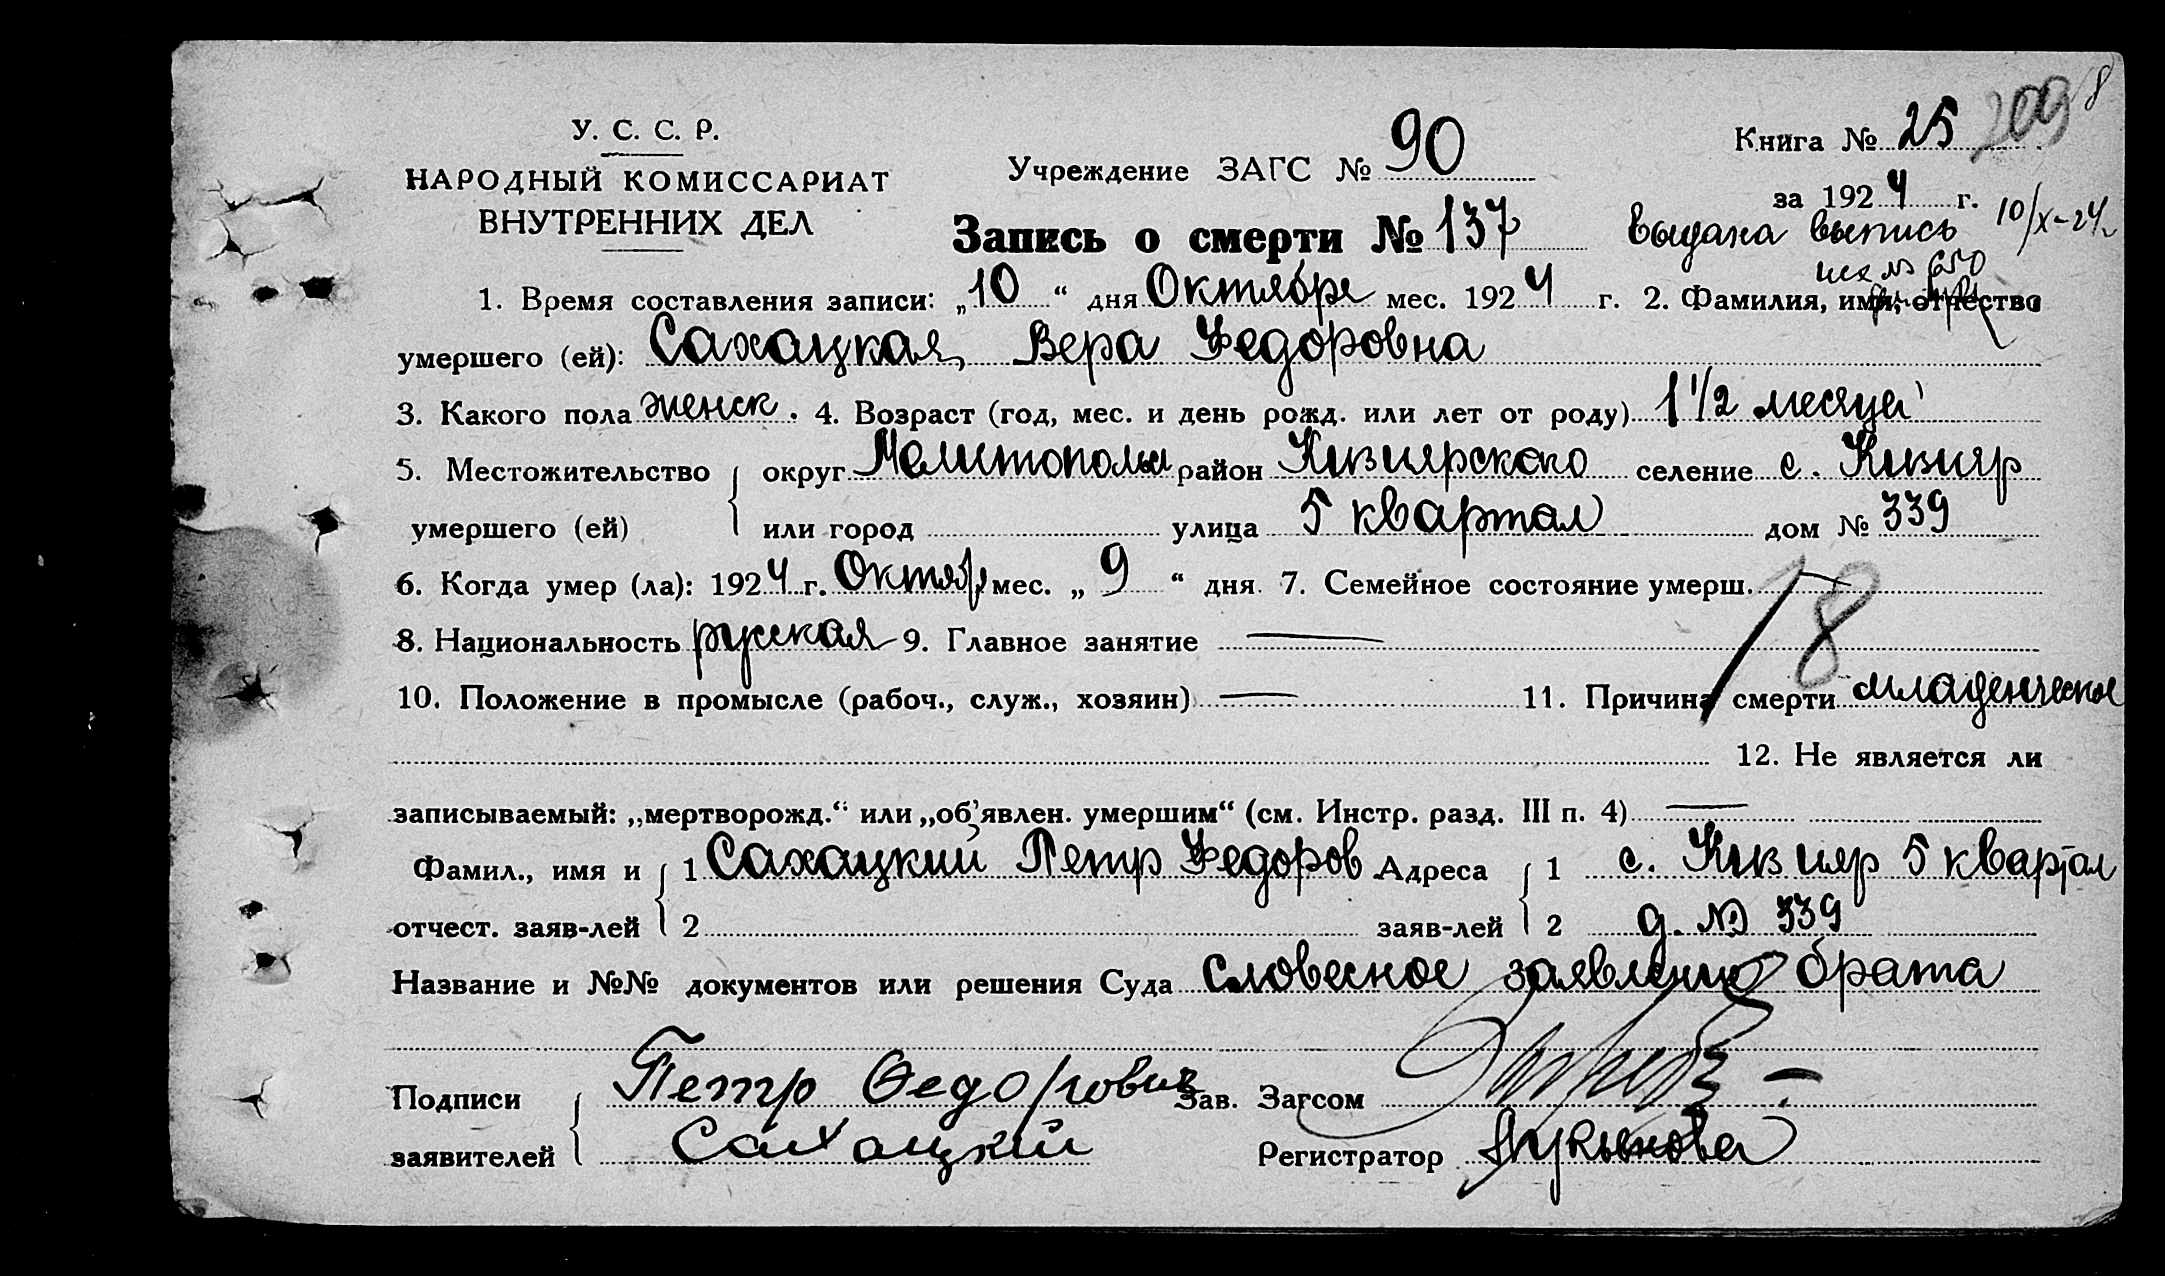 209 8
У. С. С. Р.
НАРОДНЫЙ КОМИССАРИАТ
ВНУТРЕННИХ ДЕЛ
Учреждение ЗАГС № 90
Книга № 25
за 1924 г.
Запись о смерти № 137
выдана выпись 10/X-24
исх №
1. Время составления записи: „10“ дня Октября мес. 1924 г. 2. Фамилия, имя, отчество
умершего (ей): Сахацкая, Вера Федоровна
3. Какого пола женск. 4. Возраст (год, мес. и день рожд. или лет от роду) 1 1/2 месяца
5. Местожительство округ Мелитополь район Кизиярского селение с. Кизияр
умершего (ей) или город улица 5 квартал дом № 339
6. Когда умер (ла): 1924 г. Октябр мес. „9“ дня. 7. Семейное состояние умерш.
18
8. Национальность русская 9. Главное занятие —
10. Положение в промысле (рабоч., служ., хозяин) — 11. Причина смерти младенческое
12. Не является ли
записываемый: „мертворожд.“ или „об'явлен. умершим“ (см. Инстр. разд. III п. 4) —
Фамил., имя и 1 Сахацкий Петр Федоров Адреса 1 с. Кизияр 5 квартал
отчест. заяв-лей 2 заяв-лей 2 д. № 339
Название и №№ документов или решения Суда Словесное заявление брата
Подписи Петр Федорович Зав. Загсом
заявителей Сахацкий Регистратор Лукьянова